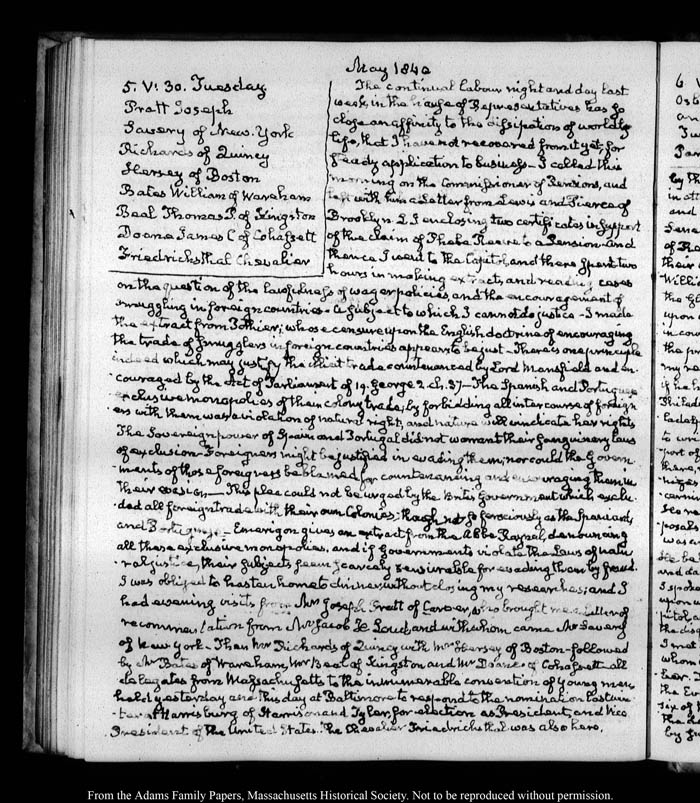 May 1840
5. V: 30. Tuesday
Pratt Joseph
Savery of New-York
Richards of Quincy
Hersey of Boston
Bates William of Wareham
Beal Thomas P. of Kingston
Doane James C of Cohassett
Friedrichsthal Chevalier
The continual labour night and day last
week in the House of Representatives has so
close an affinity to the dissipations of worldly
life, that I have not recovered from it yet, for
steady application to business— I called this
morning on the Commissioner of Pensions, and
left with him a Letter from Lewis and Pierce of
Brooklyn L. I enclosing two certificates in support
of the claim of Phebe Reeve to a Pension— and
thence I went to the Capitol, and there spent two
hours in making extracts and reading cases
on the question of the lawfulness of wager policies, and the encouragement of
smuggling in foreign countries— a subject to which I cannot do justice— I made
the extract from Pothier, whose censure upon the English doctrine of encouraging
the trade of smugglers in foreign countries appears to be just— There is one principle
indeed which may justify the illicit trade countenanced by Lord Mansfield and en-
couraged by the Act of Parliament of 19. George 2. ch. 37— The Spanish and Portuguese
exclusive monopolies of their colony trade, by forbidding all intercourse of foreign
ers with them was a violation of natural right, and nature will vindicate her rights
The Sovereign power of Spain and Portugal did not warrant their sanguinary laws
of exclusion— Foreigners might be justified in evading them; nor could the Govern-
ments of those foreigners be blamed for countenancing and encouraging them in
their evasion— This plea could not be urged by the British Government which exclu-
ded all foreign trade with their own Colonies; though not so ferociously as the Spaniards
and Portuguese— Emerigon gives an extract from the Abbé Raynal, denouncing
all these exclusive monopolies, and if Governments violate the Laws of natu
ral justice, their subjects seem scarcely censurable for evading them by fraud.
I was obliged to hasten home to dinner, without closing my researches; and I
had evening visits from Mr Joseph Pratt of Carver, who brought me a letter of
recommendation from Mr Jacob and with whom came Mr Savery
of New York— Then Mr Richards of Quincy with Mr Hersey of Boston— followed
by Mr Bates of Wareham, Mr Beal of Kingston and Mr Doane of Cohassett— all
delegates from Massachusetts to the innumerable convention of young men
held yesterday and this day at Baltimore to respond to the nomination last win-
ter at Harrisburg of Harrison and Tyler, for election as President, and Vice
President of the United States. The Chevalier Friedrichsthal was also here.
From the Adams Family Papers, Massachusetts Historical Society. Not to be reproduced without permission.